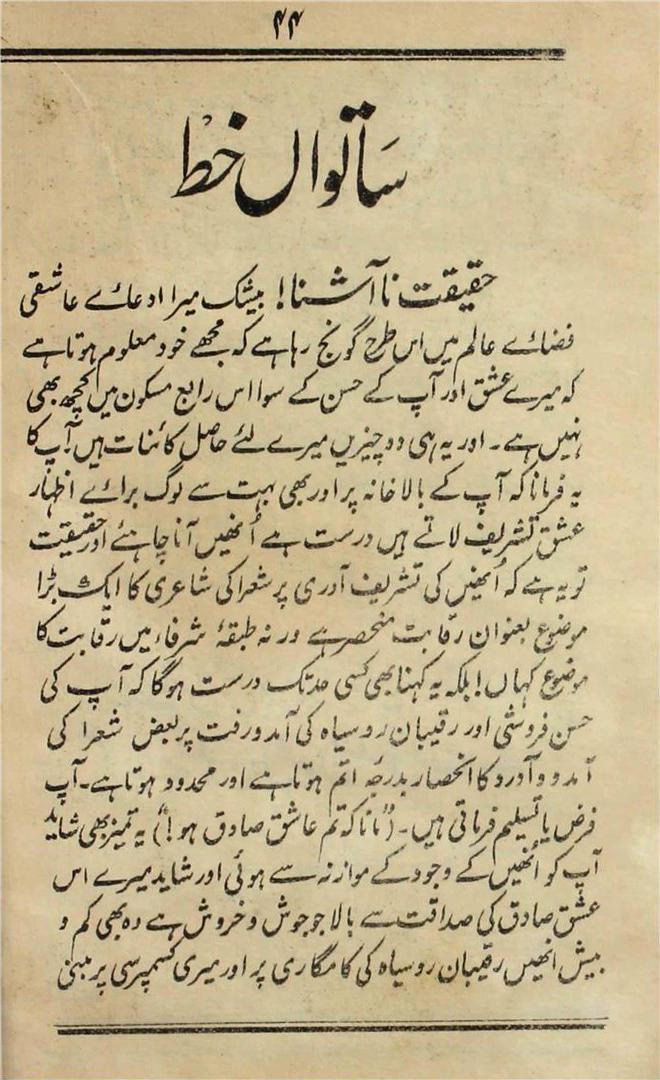 ۴۴
ساتواں خط
حقیقت نا آشنا! بیشک میرا ادعائے عاشقی
فضائے عالم میں اس طرح گونج رہا ہے کہ مجھے خود معلوم ہوتا ہے
کہ میرے عشق اور آپ کے حسن کے سوا اس رابع مسکون میں کچھ بھی
نہیں ہے۔ اور یہ ہی دو چیزیں میرے لئے حاصل کائنات ہیں آپ کا
یہ فرمانا کہ آپ کے بالا خانہ پر اور بھی بہت سے لوگ برائے اظہار
عشق تشریف لاتے ہیں درست ہے اُنھیں آنا چاہئے اور حقیقت
تو یہ ہے کہ اُنھیں کی تشریف آوری پر شعرا کی شاعری کا ایک بڑا
موضوع بعنوان رقابت منحصر ہے ورنہ طبقۂ شرفاء میں رقابت کا
موضوع کہاں! بلکہ یہ کہنا بھی کسی حد تک درست ہوگا کہ آپ کی
حسن فروشی اور رقیبان روسیاہ کی آمد و رفت پر بعض شعرا کی
آمد و آورد کا انحصار بدرجۂ اتم ہوتا ہے اور محدود ہوتا ہے۔ آپ
فرض یا تسلیم فرماتی ہیں۔ ("مانا کہ تم عاشق صادق ہو!") یہ تمیز بھی شاید
آپ کو اُنھیں کے وجود کے موازنہ سے ہوئی اور شاید میرے اس
عشق صادق کی صداقت سے بالا جو جوش و خروش ہے وہ بھی کم و
بیش انھیں رقیبان روسیاہ کی کامگاری پر اور میری کسمپرسی پر مبنی